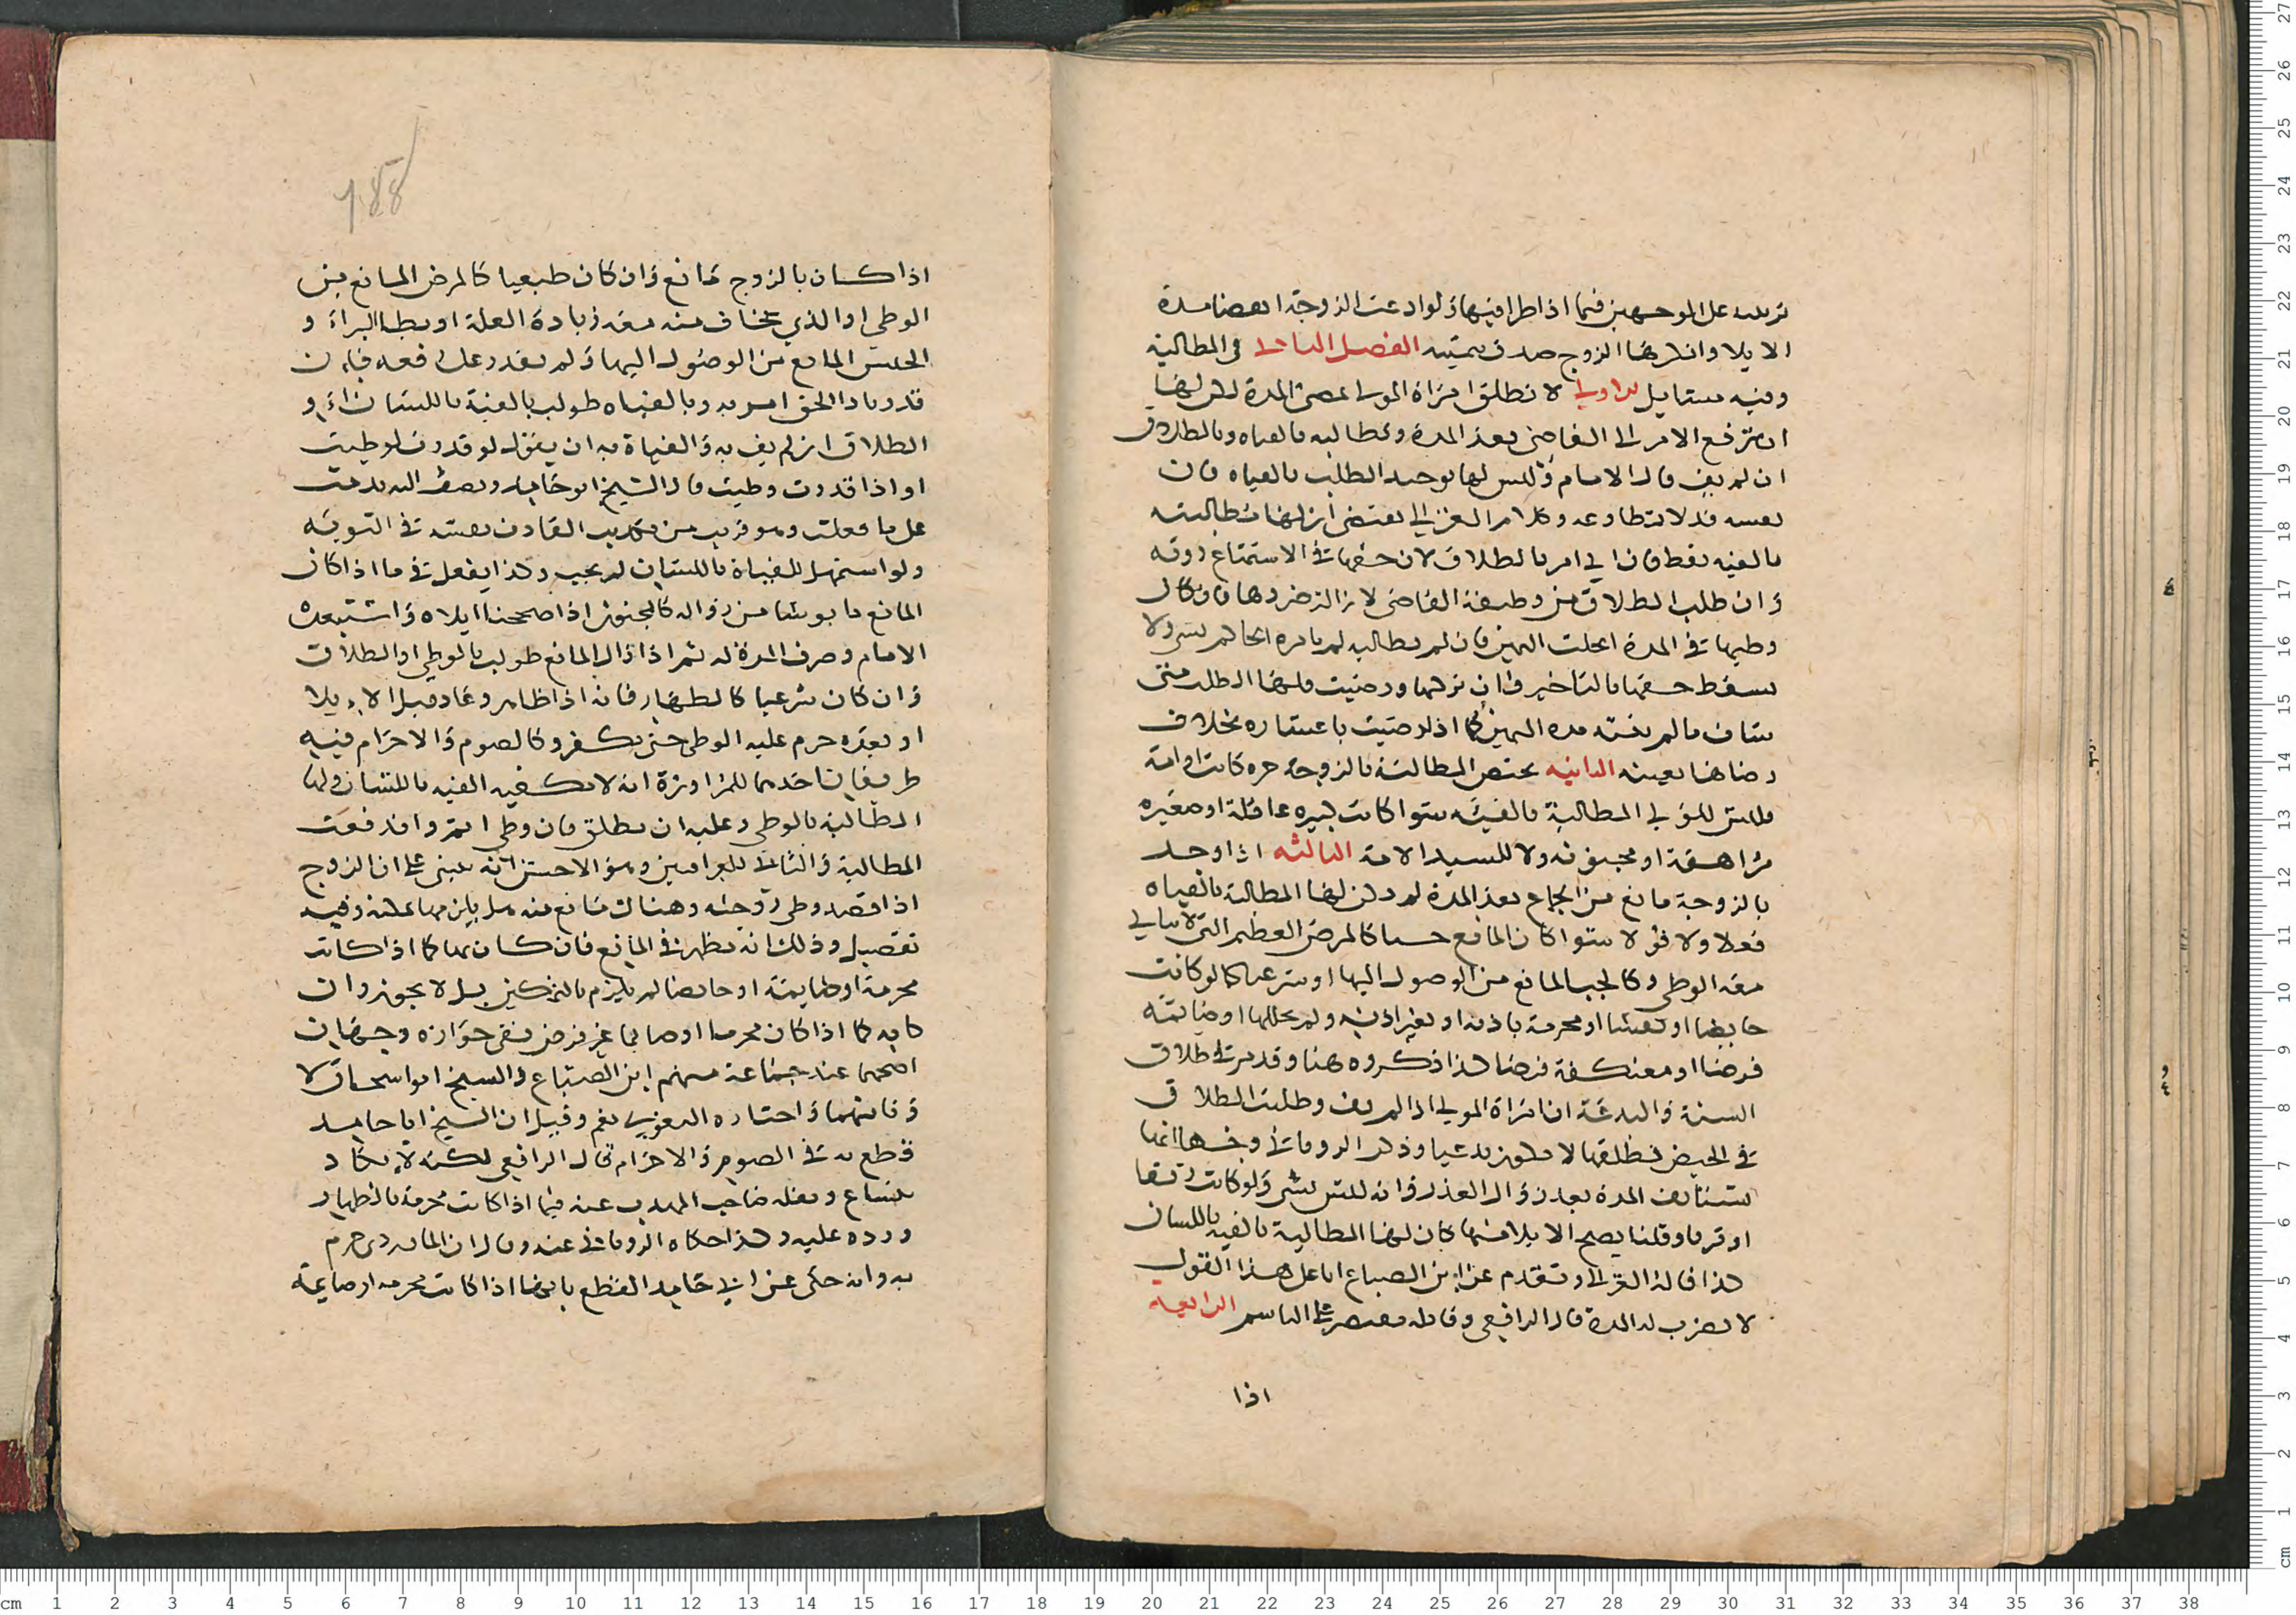 على الوجهين فيما اذا طرا فيها ولو ادعت الزوجة انقضا مدة
الايلا وانكرها الزوج صدق بيمينه الفصل الثاني في المطالبة
وفيه مسايل الاولى لا تطلق امراة المولي بمضي المدة لكن لها
ان ترفع الامر الى القاضي بعد المدة وتطالبه بالفياه وبالطلاق
ان لم يف قال الامام وليس لها توحيد الطلب بالفياه فان
نفسه قد لا تطاوعه وكلام الغزالي يقتضي ان لها مطالبته
بالفيه فقط فان ابى امر بالطلاق لان حقها في الاستمتاع دونه
وان طلب الطلاق من وظيفة القاضي لازالة ضررها فان كان
وطيها في المدة انحلت اليمين فان لم تطالبه لم يامره الحاكم بشي ولا
يسقط حقها بالتاخير وان تركها ورضيت فلها الطلب متى
شات ما لم تنته مدة اليمين كما اذا رضيت باعساره بخلاف
رضاها بعيبه الثانيه تختص المطالبة بالزوجة حرة كانت او امة
فليس للولي المطالبة بالفيئه سوا كانت كبيره عاقلة او صغيره
مراهقة او مجنونه ولا للسيد الامة الثالثه اذا وجد
بالزوجة مانع من الجماع بعد المدة لم يكن لها المطالبة بالفياه
فعلا ولا قولا سوا كان المانع حسا كالمرض العظيم التي لا يتاتى
معه الوطي وكالحب المانع من الوصول اليها او شرعيا كما لو كانت
حايضا او نفسا او محرمة باذنه او بغير اذنه ولم يحللها او صايمه
فرضا او معتكفة فرضا كذا ذكروه هنا وقد مر في طلاق
السنة والبدعة ان امراة المولي اذا لم يف وطلبت الطلاق
في الحيض فطلقها لا يكون بدعيا وذكر الروياني وجها انها
تستانف المدة بعد زوال العذر وانه ليس بشي ولو كانت رتقا
او قرنا وقلنا يصح الايلا منها كان لها المطالبة بالفيه باللسان
كذا قاله الغزالي وتقدم عن ابن الصباغ انا على هذا القول
لا نضرب له المدة قال الرافعي وقايله مقتصر على التاسم الرابعه
اذا
اذا كان بالزوج مانع وان كان طبعيا كالمرض المانع من
الوطي او الذي يخاف منه معه زيادة العلة او بطا البراء و
الحبس المانع من الوصول اليها ولم يقدر على دفعه فان
قدر باداء الحق امر به وبالفياه طولب بالفيئة باللسان و
الطلاق ان لم يف به والفياة به ان يقول لو قدرت لوطيت
او اذا قدرت وطيت قال الشيخ ابو حامد ويضف اليه ندمت
على ما فعلت وهو قريب من تكذيب القاذف نفسه في التوبه
ولو استمهل للفياة باللسان لم يجب وكذا يفعل في ما اذا كان
المانع مايوسا من زواله كالمجنون اذا صححنا ايلاه واستبعده
الامام وصرف المدة له ثم اذا زال المانع طولب بالوطي او الطلاق
وان كان شرعيا كالظهار فانه اذا ظاهر وعاد قبل الايلا
او بعده حرم عليه الوطي حتى يكفر وكالصوم والاحرام فيه
طريقان احدهما للمراوزة انه لا تكفيه الفيه باللسان ولها
المطالبة بالوطي وعليه ان يطلق فان وطي اثم واندفعت
المطالبة والثاني للعراقيين وهو الاحسن انه يبنى على ان الزوج
اذا قصد وطي زوجته وهناك مانع منه هل يلزمها تمكينه وفيه
تفصيل وذلك انه ينظر في المانع فان كان بها كما اذا كانت
محرمة او صايمة او حايضا لم يلزم بالتمكين بل لا يجوز وان
كان به كما اذا كان محرما او صايما عن فرض ففي جوازه وجهان
اصحهما عند جماعة منهم ابن الصباغ والشيخ ابو اسحاق لا
وثانيهما واختاره البغوي نعم وقيل ان الشيخ ابا حامد
قطع به في الصوم والاحرام قال الرافعي لكنه لا يكاد
ينساغ ونقله صاحب المهذب عنه فيما اذا كانت محرمة بالظهار
ورده عليه وكذا حكاه الروياني عنه وقال ان الماوردي جزم
به وانه حكى عن ابي حامد القطع بانها اذا كانت محرمة او صايمة